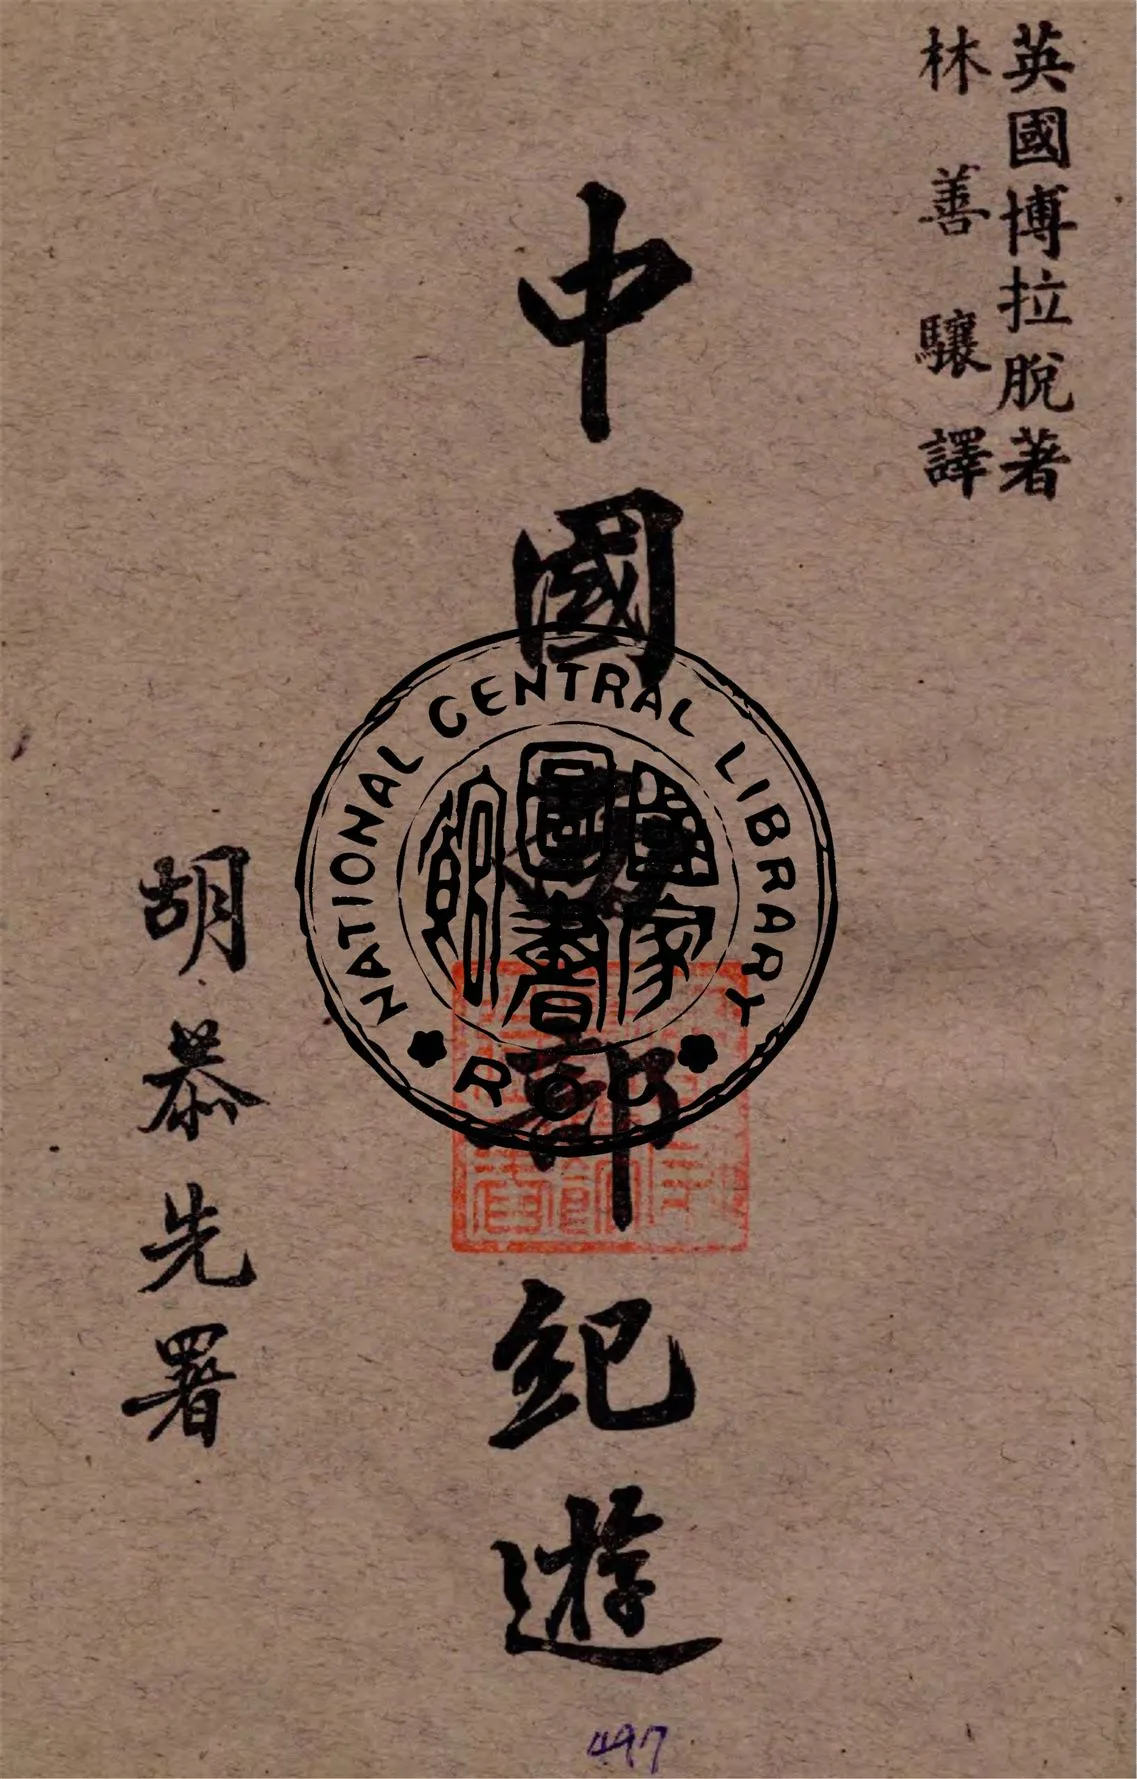 英國博拉脫著
林善驤譯
中國部紀遊
胡恭先署
NATIONAL CENTRAL LIBRARY
國家圖書館
R O C
497